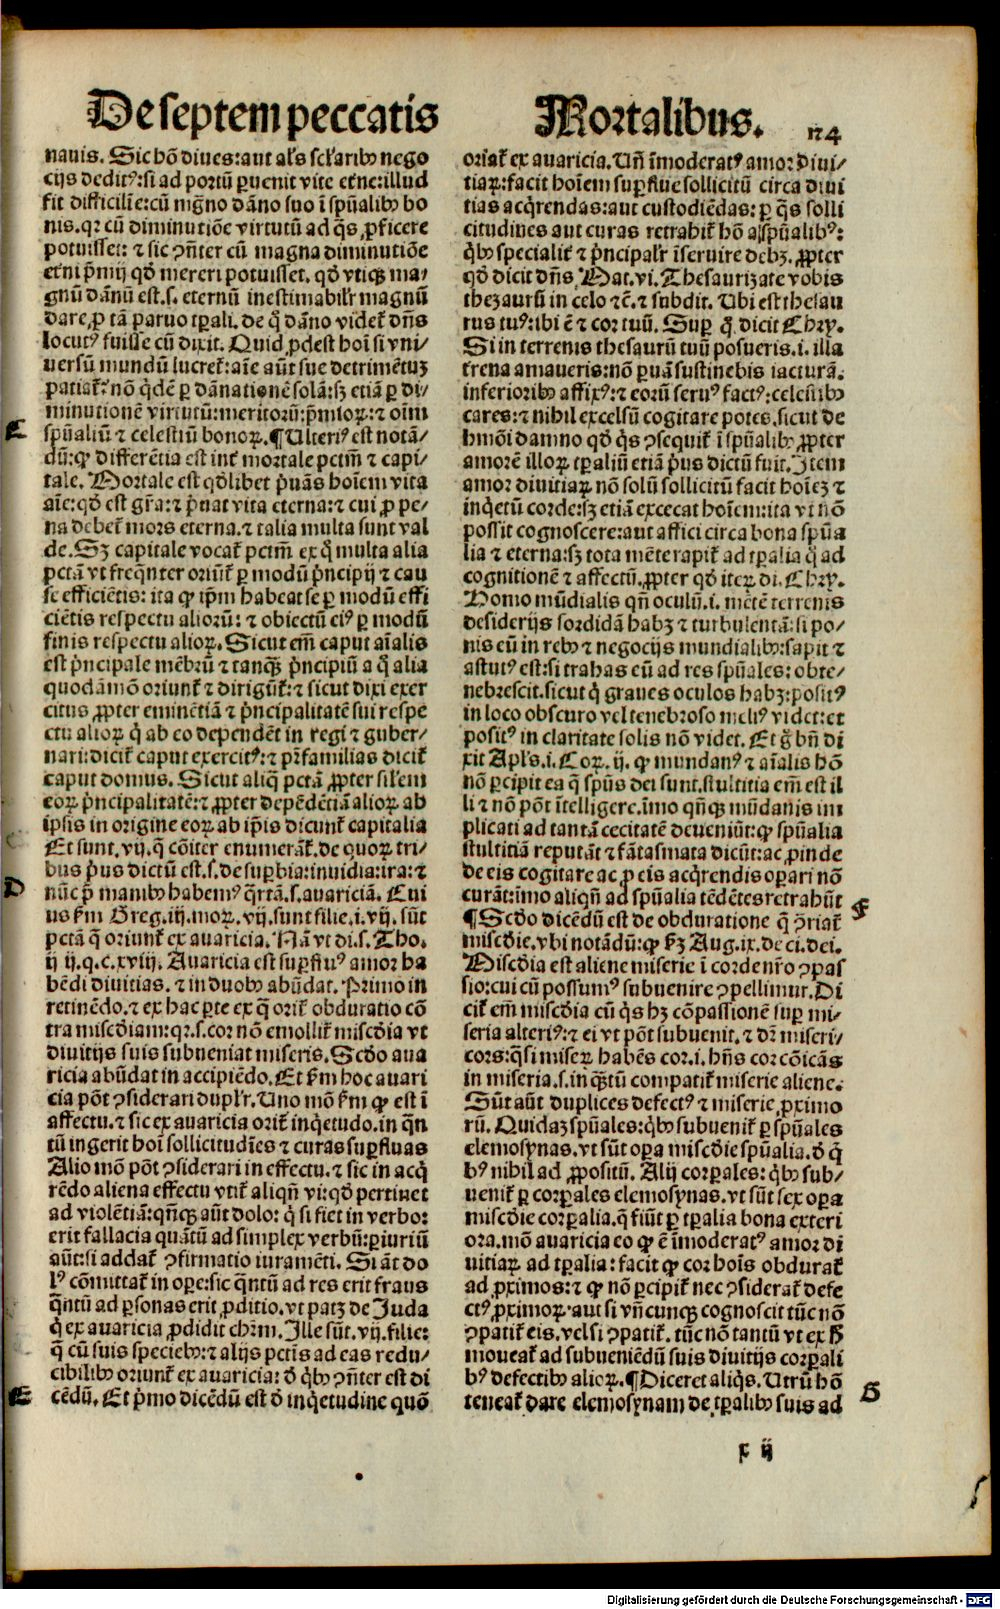 De septem peccatis
Mortalibus. 124
nauis. Sic hõ diues: aut al's sclarib⁹ nego
cijs dedit⁹: si ad portũ ꝑuenit vite etne: illud
fit difficilie: cũ mgño dãno suo ĩ spũalib⁹ bo
nis. qꝛ cũ diminutiõe virtutũ ad q̃s ꝓficere
potuisset: ⁊ sic ꝯñter cũ magna diminutiõe
etni p̃mij qđ mereri potuisset. qđ vtiqꝫ ma-
gnũ dãnũ est. s. eternũ inestimabilr magnũ
dare ꝓ tã paruo tꝑali. de q̃ dãno videt̃ dñs
locut⁹ fuisse cũ dixit. Quid ꝓdest hoĩ si vni-
uersũ mundũ lucret̃: aĩe aũt sue detrimẽtuꝫ
patiat̃: nõ q̃dẽ ꝑ dãnationẽ solã: sꝫ etiã ꝑ di-
minutionẽ virtutũ: meritorũ: p̃mioꝝ: ⁊ oĩm
spũaliũ ⁊ celestiũ bonoꝝ. ¶ Ulteri⁹ est notã-
dũ: ꝙ differẽtia est int̃ mortale pctm̃ ⁊ capi-
tale. Mortale est qđlibet p̃uãs hoĩem vita
aĩe: qđ est gr̃a: ⁊ p̃uat vita eterna: ⁊ cui ꝓ pe-
na debet̃ mors eterna. ⁊ talia multa sunt val
de. Sꝫ capitale vocat̃ pctm̃ ex q̃ multa alia
pctã vt freq̃nter oriũt̃ ꝑ modũ p̃ncipij ⁊ cau
se efficiẽtis: ita ꝙ ip̃m habeat se ꝑ modũ effi
ciẽtis respectu aliorũ: ⁊ obiectũ ei⁹ ꝑ modũ
finis respectu alioꝝ. Sicut em̃ caput aĩalis
est p̃ncipale mẽbrũ ⁊ tanqꝫ p̃ncipiũ a q̃ alia
quodãmõ oriunt̃ ⁊ dirigũt̃: ⁊ sicut dixi exer
citus ꝓpter eminẽtiã ⁊ p̃ncipalitatẽ sui respe
ctu alioꝝ q̃ ab eo dependẽt in regi ⁊ guber-
nari: dicit̃ caput exercit⁹: ⁊ pr̃familias dicit̃
caput domus. Sicut aliq̃ pctã ꝓpter sil'em
eoꝝ p̃ncipalitatẽ: ⁊ ꝓpter depẽdẽtiã alioꝝ ab
ipsis in origine eoꝝ ab ip̃is dicunt̃ capitalia
Et sunt .vij. q̃ cõiter enumerãt̃. de quoꝝ tri-
bus p̃us dictũ est. s. de suꝑbia: inuidia: ira: ⁊
nũc p̃ manib⁹ habem⁹ q̃rtã. s. auariciã. Cui
us ẜm Greg. iij. moꝝ. vij. sunt filie. i. vij. sũt
pctã q̃ oriunt̃ ex auaricia. Nã vt di. s. Tho.
ij ij. q. c. xviij. Auaricia est suꝑflu⁹ amor ha
bẽdi diuitias. ⁊ in duob⁹ abũdat. Primo in
retinẽdo. ⁊ ex hac ꝑte ex q̃ orit̃ obduratio cõ
tra miscđiam: qꝛ. s. cor nõ emollit̃ miscđia vt
diuitijs suis subueniat miseris. Scđo aua
ricia abũdat in accipiẽdo. Et ẜm hoc auari
cia põt ꝯsiderari duplr. Uno mõ ẜm ꝙ est ĩ
affectu. ⁊ sic ex auaricia orit̃ inq̃etudo. in q̃n
tũ ingerit hoĩ sollicitudĩes ⁊ curas suꝑfluas
Alio mõ põt ꝯsiderari in effectu. ⁊ sic in acq̃
rẽdo aliena effectu vtit̃ aliqñ vi: qđ pertinet
ad violẽtiã: qñqꝫ aũt dolo: q̃ si fiet in verbo:
erit fallacia quãtũ ad simplex verbũ: ꝑiuriũ
aũt: si addat̃ ꝯfirmatio iuramẽti. Si ãt do
l⁹ cõmittat̃ in oꝑe: sic q̃ntũ ad res erit fraus
q̃ntũ ad ꝑsonas erit ꝓditio. vt patꝫ de Juda
q̃ ex auaricia ꝓdidit chr̃m. Ille sũt. vij. filie:
q̃ cũ suis specieb⁹: ⁊ alijs pctis ad eas redu-
cibilib⁹ oriunt̃ ex auaricia: đ q̃b⁹ ꝯñter est di
cẽdũ. Et p̃mo dicẽdũ est đ inq̃etudine quõ
C
D
E
oriat̃ ex auaricia. Uñ ĩmoderat⁹ amor diui-
tiaꝝ: facit hoĩem suꝑflue sollicitũ circa diui
tias acq̃rendas: aut custodiẽdas: ꝑ q̃s solli
citudines aut curas retrahit̃ hõ a spũalib⁹:
q̃b⁹ specialit̃ ⁊ p̃ncipalr ĩseruire debꝫ. ꝓpter
qđ dicit dñs Mat. vi. Thesaurizate vobis
thezaurũ in celo ⁊c̃. ⁊ subdit. Ubi est thesau
rus tu⁹: ibi ẽ ⁊ cor tuũ. Suꝑ q̃ dicit Chry.
Si in terrenis thesaurũ tuũ posueris. i. illa
t̃rena amaueris: nõ ꝑuã sustinebis iacturã.
inferiorib⁹ affix⁹: ⁊ eorũ seru⁹ fact⁹: celestib⁹
cares: ⁊ nihil excelsũ cogitare potes. sicut de
hmõi damno qđ q̃s ꝯsequit̃ ĩ spũalib⁹ ꝓpter
amorẽ illoꝝ tꝑaliũ etiã p̃us dictũ fuit. Item
amor diuitiaꝝ nõ solũ sollicitũ facit hoĩeꝫ ⁊
inq̃etũ corde: sꝫ etiã excecat hoĩem: ita vt nõ
possit cognoscere: aut affici circa bona spũa
lia ⁊ eterna: sꝫ tota mẽte rapit̃ ad tꝑalia q̃ ad
cognitionẽ ⁊ affectũ. ꝓpter qđ iteꝝ di. Chry.
Homo mũdialis qñ oculũ. i. mẽtẽ terrenis
desiderijs sordidã habꝫ ⁊ turbulentã: si po-
nis eũ in reb⁹ ⁊ negocijs mundialib⁹: sapit ⁊
astut⁹ est: si trahas eũ ad res spũales: obte-
nebrescit. sicut q̃ graues oculos habꝫ: posit⁹
in loco obscuro vel tenebroso meli⁹ videt: et
posit⁹ in claritate solis nõ videt. Et g̃ bñ di
xit Apl's. i. Coꝝ. ij. ꝙ mundan⁹ ⁊ aĩalis hõ
nõ ꝑcipit ea q̃ spũs dei sunt. stultitia em̃ est il
li ⁊ nõ põt ĩtelligere. ĩmo qñqꝫ mũdanis im
plicati ad tantã cecitatẽ deueniũt: ꝙ spũalia
stultitiã reputãt ⁊ fãtasmata dicũt: ac ꝓinde
de eis cogitare ac ꝓ eis acq̃rendis oꝑari nõ
curãt: ĩmo aliqñ ad spũalia tẽdẽtes retrahũt
¶ Scđo dicẽdũ est de obduratione q̃ ꝯ̃riat̃
miscđie. vbi notãdũ: ꝙ ẜꝫ Aug. ix. de ci. dei.
Miscđia est aliene miserie ĩ corde nr̃o ꝯpas
sio: cui cũ possum⁹ subuenire ꝯpellimur. Di
cit̃ em̃ miscđia cũ q̃s hꝫ cõpassionẽ suꝑ mi-
seria alteri⁹: ⁊ ei vt põt subuenit. ⁊ dr̃ miseri
cors: q̃si miseꝝ habẽs cor. i. hñs cor cõicãs
in miseria. s. in q̃ꝫtũ compatit̃ miserie aliene.
Sũt aũt duplices defect⁹ ⁊ miserie ꝓximo
rũ. Quidaꝫ spũales: q̃b⁹ subuenit̃ ꝑ spũales
elemosynas. vt sũt oꝑa miscđie spũalia. đ q̃
b⁹ nihil ad ꝓpositũ. Alij corꝑales: q̃b⁹ sub-
uenit̃ ꝑ corꝑales elemosynas. vt sũt sex oꝑa
miscđie corꝑalia. q̃ fiũt ꝑ tꝑalia bona exteri
ora. mõ auaricia eo ꝙ ẽ ĩmoderat⁹ amor di
uitiaꝝ ad tꝑalia: facit ꝙ cor hoĩs obdurat̃
ad ꝓximos: ⁊ ꝙ nõ ꝑcipit̃ nec ꝯsiderat̃ defe
ct⁹ ꝓximoꝝ. aut si vñcunqꝫ cognoscit tũc nõ
ꝯpatit̃ eis. vel si ꝯpatit̃. tũc nõ tantũ vt ex ħ
moueat̃ ad subueniẽdũ suis diuitijs corꝑali
b⁹ defectib⁹ alioꝝ. ¶ Diceret aliq̃s. Utrũ hõ
teneat̃ dare elemosynam de tꝑalib⁹ suis ad
F
G
x ij
Digitalisierung gefördert durch die Deutsche Forschungsgemeinschaft - DFG